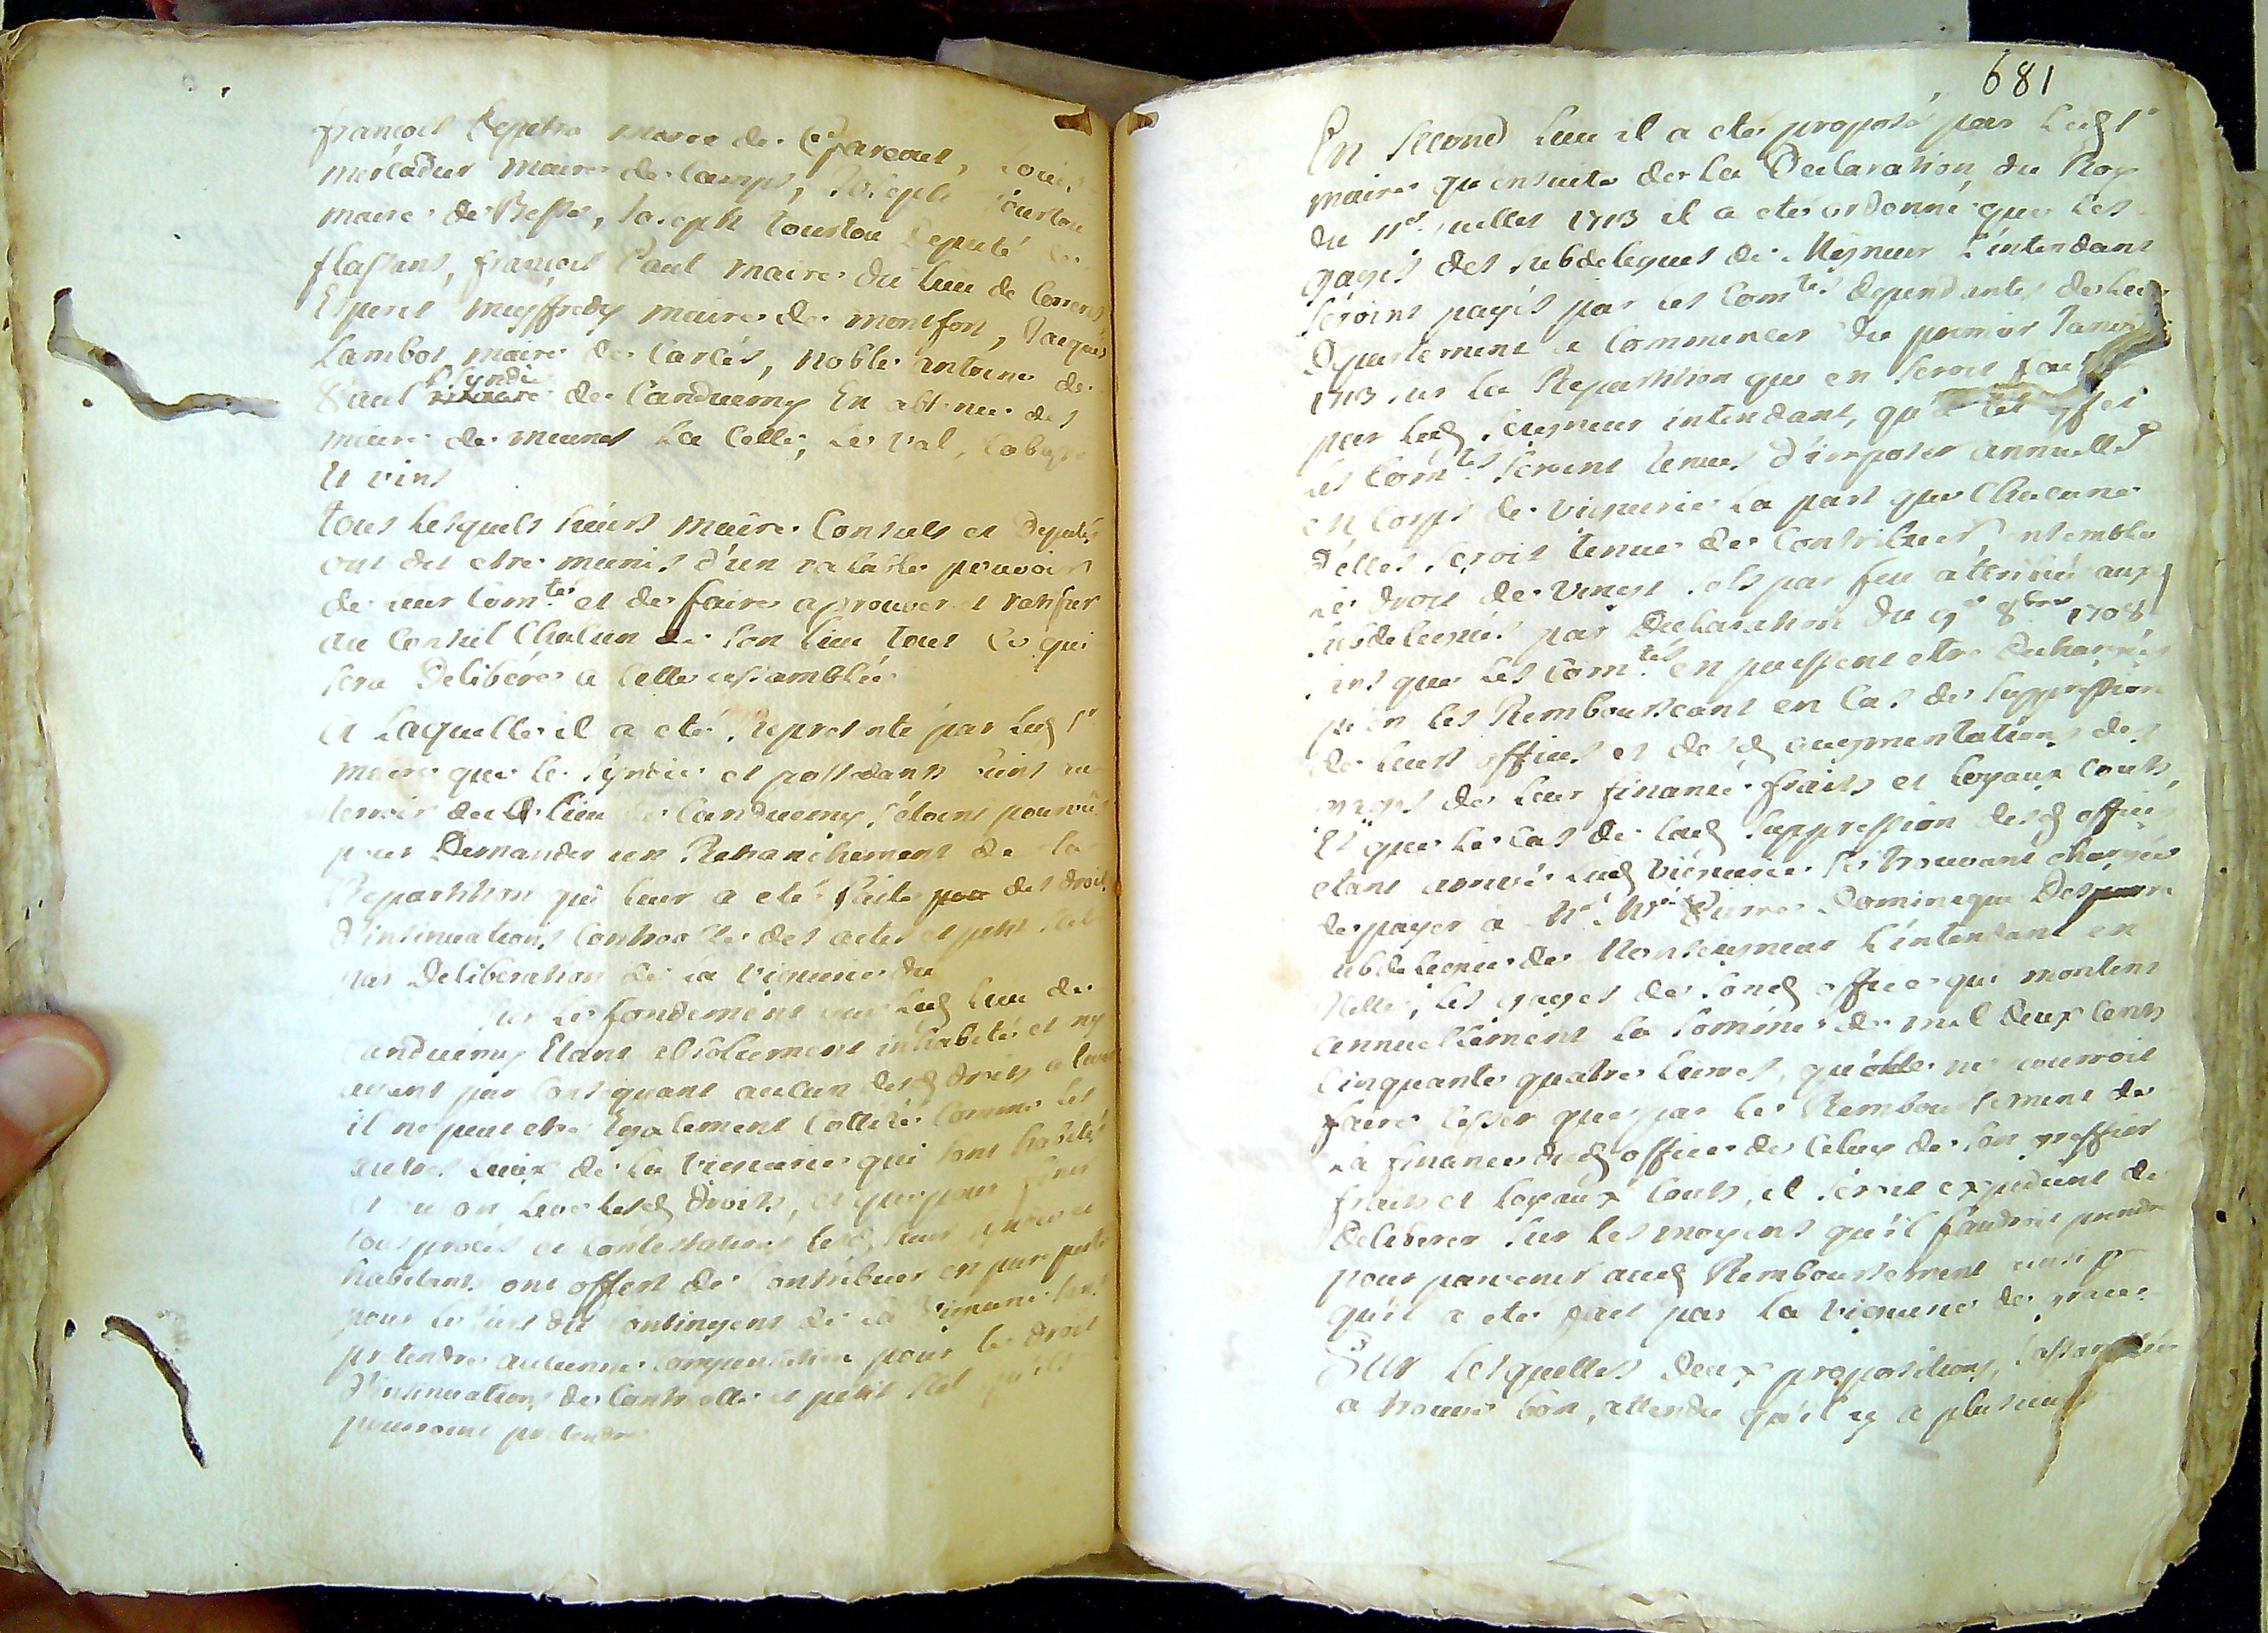 françois maire de Louis
mercadier maire de Camps, Joseph Tourtou
maire de Besse, Joseph Tourtou deputé de
flassans, françois Paul maire du lieu de Correns
Esperit meyffredy maire de montfort, Jacques
Lambot maire de Carcés, noble antoine de
Paul scyndic de Canduemy En absence des
maire de meounes La Celle, le val, Cabasse
et vins
tous lesquels sieurs maire Consuls et Deputés
ont dit etre munis d'un valable pouvoir
de leur Com.tés et de faire aprouver et ratifier
au Conseil Chacun de son lieu tout Ce qui
sera Deliberé a Cette assamblée
A Laquelle il a eté representé par Led sr
maire que le syndic et possedants biens au
terroir du lieu de Canduemy s'étoint pourvus
pour Demander un Retranchement de la
Repartition qui leur a eté faite des droits
d'insinuations Controolle des actes et petit
par Deliberation de la viguerie du
sur Le fondement que Led lieu de
Canduemy Etant absolument inhabité et ny
ayant par Consequant aucun desd droits a lever
il ne peut etre egalement Cottisé Comme les
autres lieux de la viguerie qui sont habités
et ou on leve lesd droits, et que pour finir
tous procés et Contestations lesd sieurs syndic et
habitans ont offert de Contribuer en pure perte
pour le tiers du Contingent de la viguerie sans
pretendre aucune compensation pour le droit
d'insinuations de Controolle et petit qu'ils
pourroint pretendre
681
En second lieu il a eté proposé par Led sr
maire qu'ensuite de la Declaration du Roy
du 11e juillet 1713 il a eté ordonné que les
gages des subdelegués de Mgneur L'intendant
seroint payés par les Com.tés dependantes de leur
Departement a Commencer du premier Janvier
1713 sur la Repartition que en seroit faite
par led seigneur intendant, qu'a cet effet
les Com.tés seroint tenues d'imposer annuellet
en Corps de viguerie la part que Chacune
d'elles seroit tenue de Contribuer, ensemble
le droit de vingt sols par feu attribué aux
subdelegués par Declaration du 9e 8bre 1708
sans que les Com.tés en puissent etre dechargées
qu'en les Remboursant en Cas de suppression
de leurs offices et desd augmentations des
gages de leur finance frais et loyaux couts,
Et que le cas de lad suppression desd offices
etant arrivé lad viguerie se trouvant chargée
de payer à Mre Pierre Dominique
subdelegué de Monseigneur L'intendant en
icelle, les gages de sond office qui montent
annuellement la somme de mil deux cents
Cinquante quatre livres, qu'elle ne pourroit
faire Cesser que par le Remboursement de
la finance dud office de Celuy de son greffier
frais et loyaux couts, il seroit expedient de
deliberer sur les moyens qu'il faudroit prendre
pour parvenir aud Remboursement ainsi
qu'il a eté fait par la viguerie de
Sur lesquelles deux propositions, l'assamblée
a trouvé bon, attendu qu'il y a plusieurs